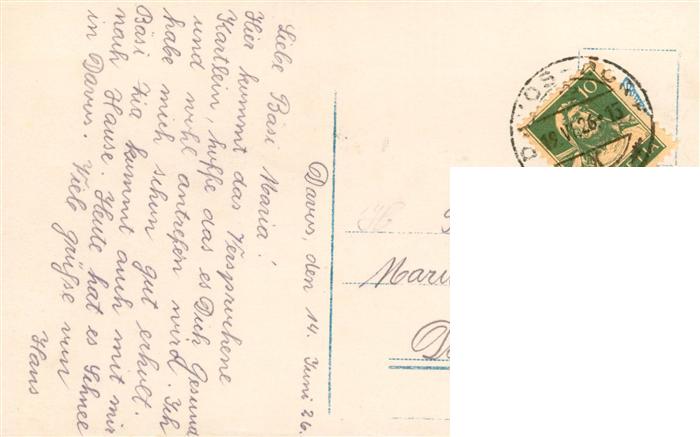 Davos, den 14. Juni 26.
Liebe Bäsi Maria!
Hier kommt das Versprochene
Kärtlein, hoffe das es Dich Gesund
und wohl antrefen wird. Ich
habe mich schon gut erholt.
Bäsi Zia kommt auch mit mir
nach Hause. Heute hat es Schnee
in Davos. Viele Grüße von
Hans
10
19. VI. 26.-15